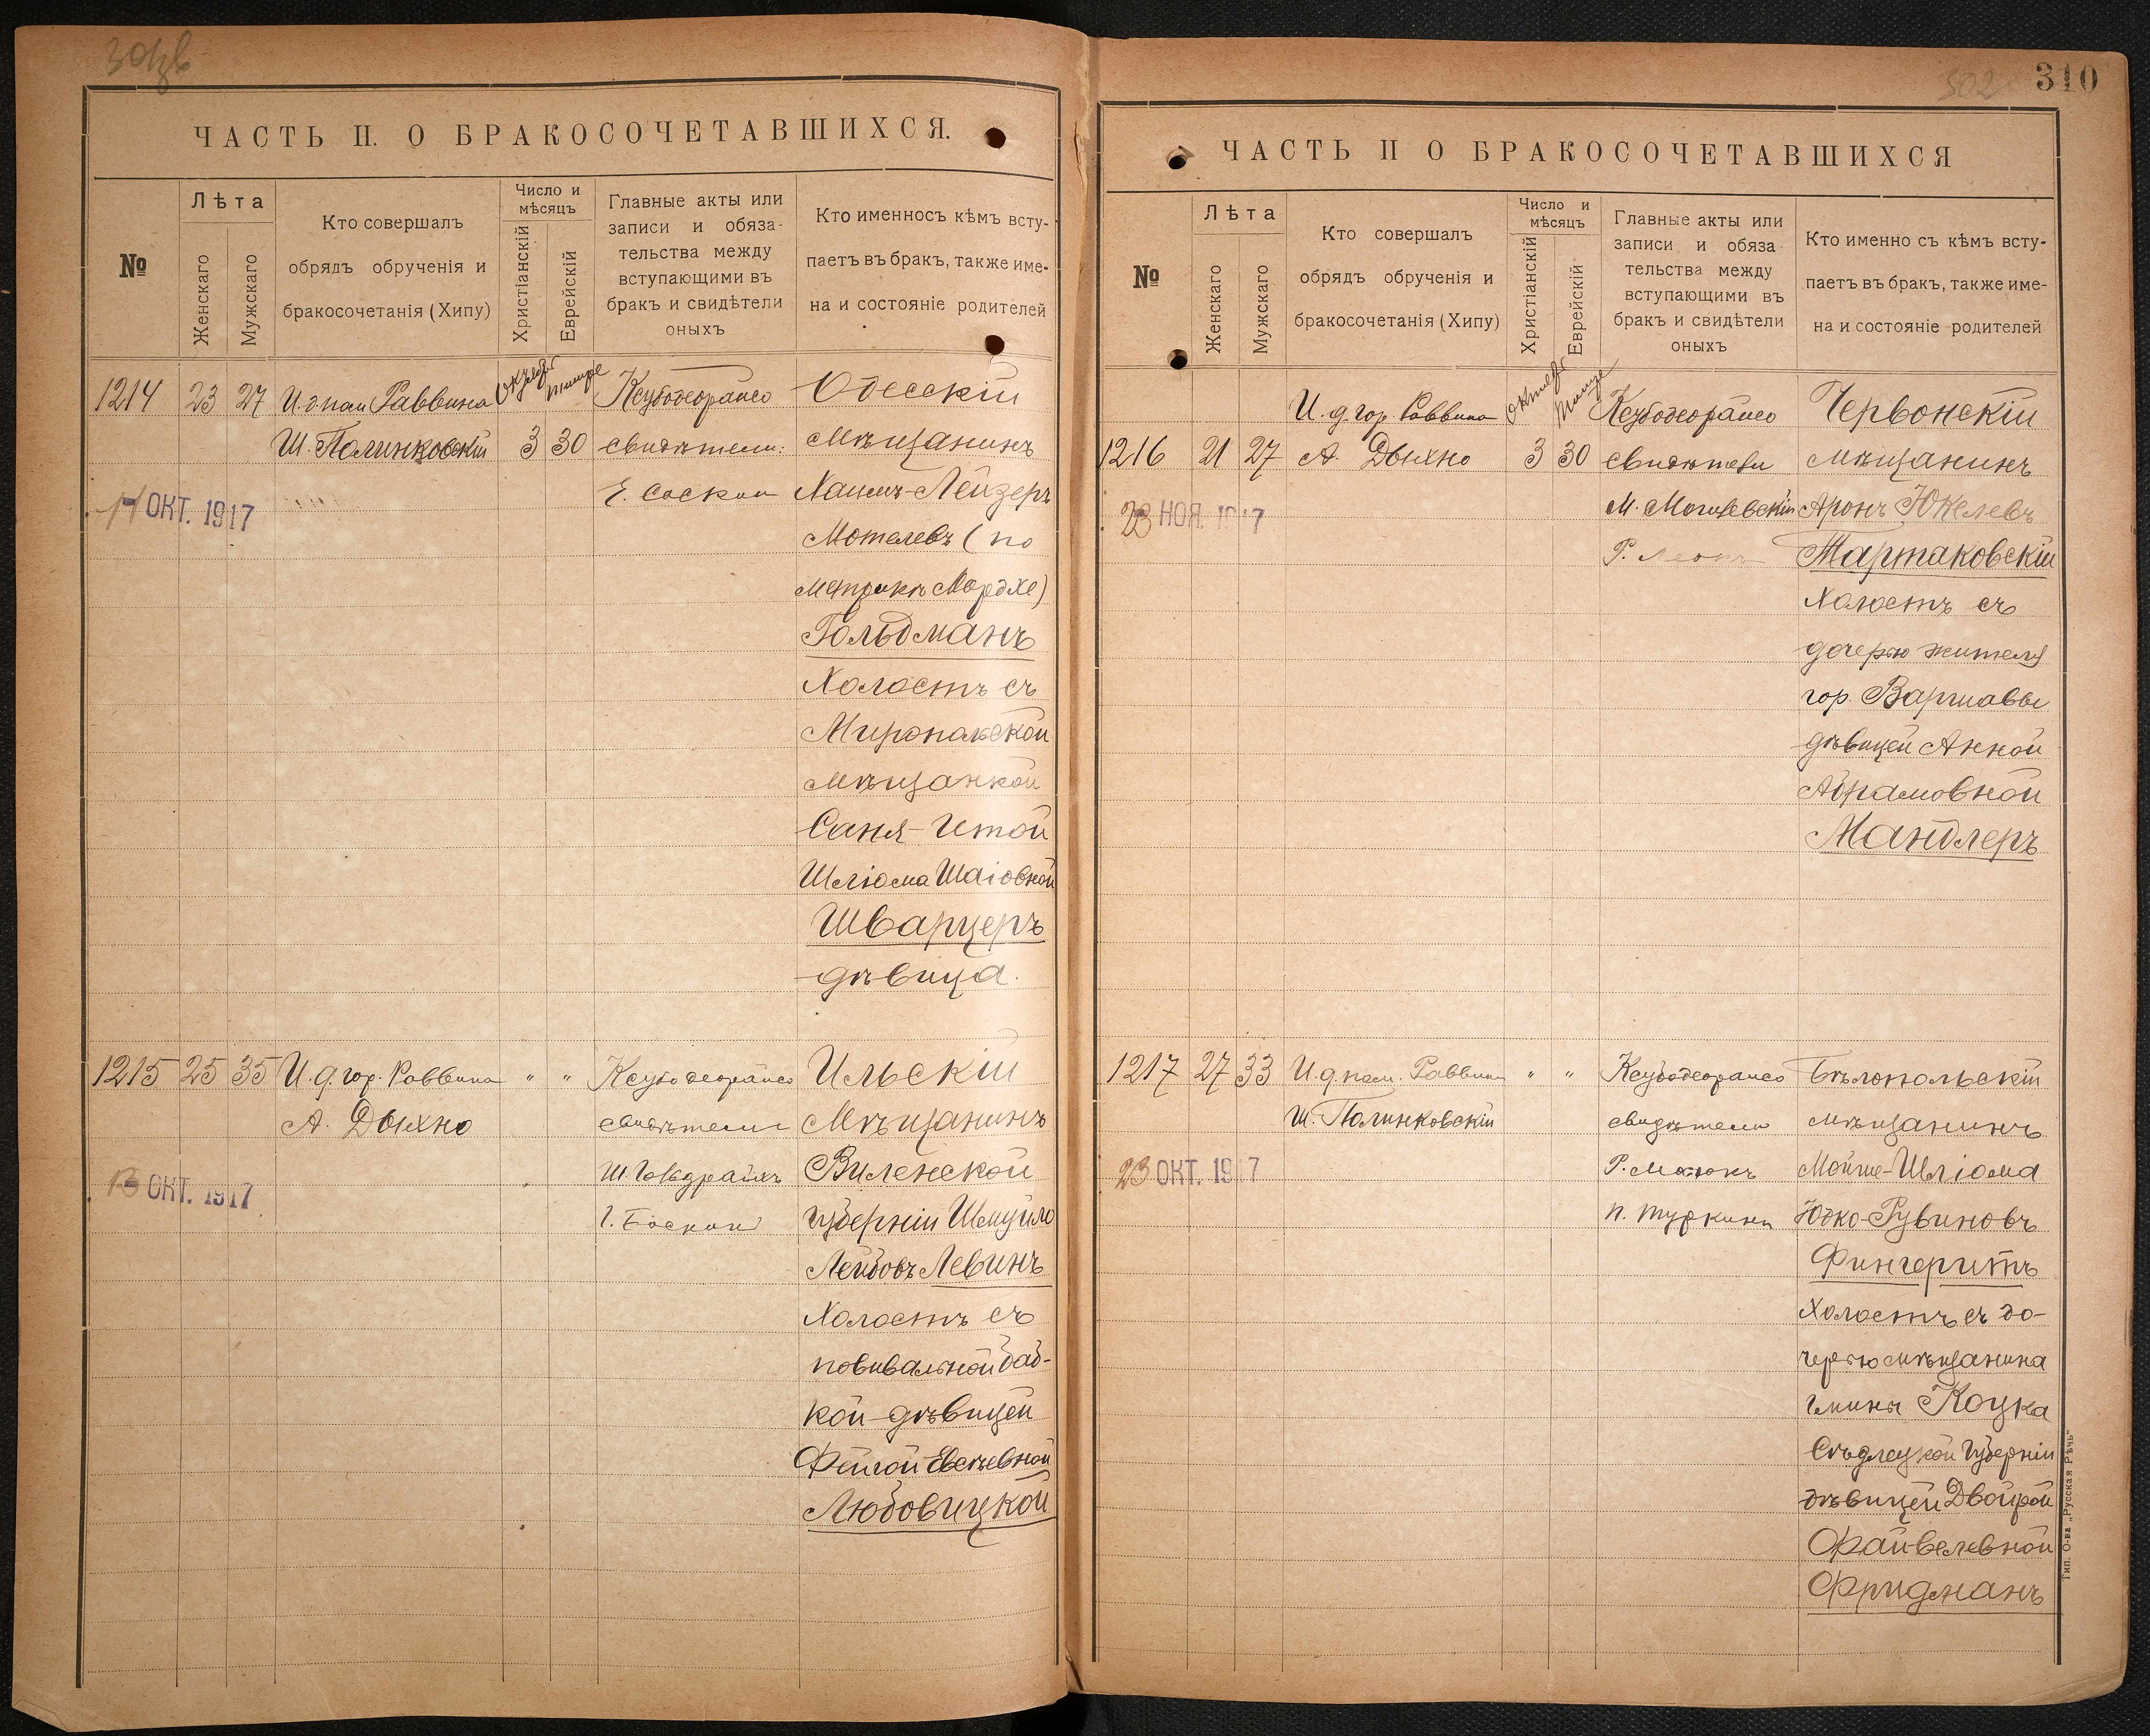 310
ЧАСТЬ II. О БРАКОСОЧЕТАВШИХСЯ.
№
Лѣта
Женскаго
Мужскаго
Кто совершалъ
обрядъ обрученія и
бракосочетанія (Хипу)
Число и
мѣсяцъ
Христіанскій
Еврейскій
Главные акты или
записи и обяза-
тельства между
вступающими въ
бракъ и свидѣтели
оныхъ
Кто именносъ кѣмъ всту-
паетъ въ бракъ, также име-
на и состояніе родителей
1214 23 27
И.д. пом Раввина
Ш. Полинковскій
3 30
свидѣтели:
Одесскій
мѣщанинъ
Хаимъ-Лейзеръ
Мотелевъ (по
метрикѣ Мордхе)
Гольдманъ
Холостъ съ
Миропольской
мѣщанкой
Саня-Итой
Шліома Шаіовной
Шварцеръ
дѣвица.
ОКТ. 1917
1215 25 35
И.д. гор. Раввина
А. Дыхно
" "
свидѣтели
Ильскій
Мѣщанинъ
Виленской
губерніи Шмуйло
Лейбовъ Левинъ
Холостъ съ
повивальной баб-
кой-дѣвицей
Фейгой Евсѣевной
Любовицкой
ОКТ. 1917
ЧАСТЬ II О БРАКОСОЧЕТАВШИХСЯ
№
Лѣта
Женскаго
Мужскаго
Кто совершалъ
обрядъ обрученія и
бракосочетанія (Хипу)
Число и
мѣсяцъ
Христіанскій
Еврейскій
Главные акты или
записи и обяза
тельства между
вступающими въ
бракъ и свидѣтели
оныхъ
Кто именно съ кѣмъ всту-
паетъ въ бракъ, также име-
на и состояніе родителей
И.д. гор. Раввина
1216 21 27
А. Дыхно
3 30
свидѣтели
М. Могилевскій
Червонскій
мѣщанинъ
Аронъ Юкелевъ
Тартаковскій
Холостъ съ
дочерью жителя
гор. Варшавы
дѣвицей Анной
Абрамовной
Мандлеръ
23 НОЯ. 1917
1217 27 33
И.д. пом. Раввина
Ш. Полинковскій
" "
свидѣтели
П. Туркинъ
Бѣлопольскій
мѣщанинъ
Мойше-Шліома
Юдко-Рувиновъ
Фингерить
Холостъ съ до-
черью мѣщанина
гмины Коцка
Сѣдлецкой губерніи
дѣвицей Двойрой
Файвелевной
Фридманъ
23 ОКТ. 1917
Тип. О-ва „Русская Рѣчь“